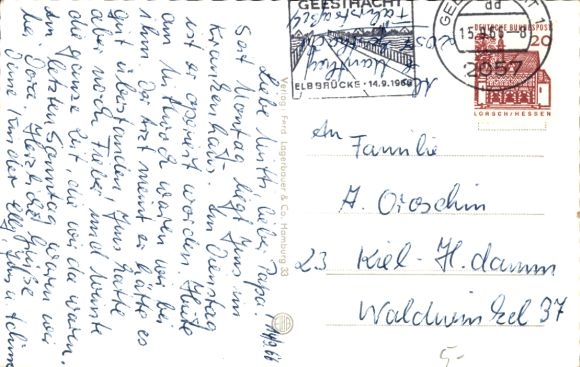 GEESTHACHT
ELBBRÜCKE · 14.9.1966
15.9.66 - 8
2057
DEUTSCHE BUNDESPOST
20
LORSCH/HESSEN
An
Familie
A. Oroschin
23 Kiel-H.damm
Waldwiesen 37
5-
Verlag Ferd. Lagerbauer & Co., Hamburg 33
14/9.66
Liebe Mutti, lieber Papa!
Seit Montag liegt Jens im
Krankenhaus. Am Dienstag
ist er operiert worden. Heute
am Mittwoch waren wir bei
ihm. Der Arzt meint er hätte es
gut überstanden. Jens hatte
aber noch Fieber und weinte
die ganze Zeit, die wir da waren.
Am letzten Sonntag waren wir
bei Dora. Herzliche Grüße
Eure Kinder Elly, Jens u. Achim